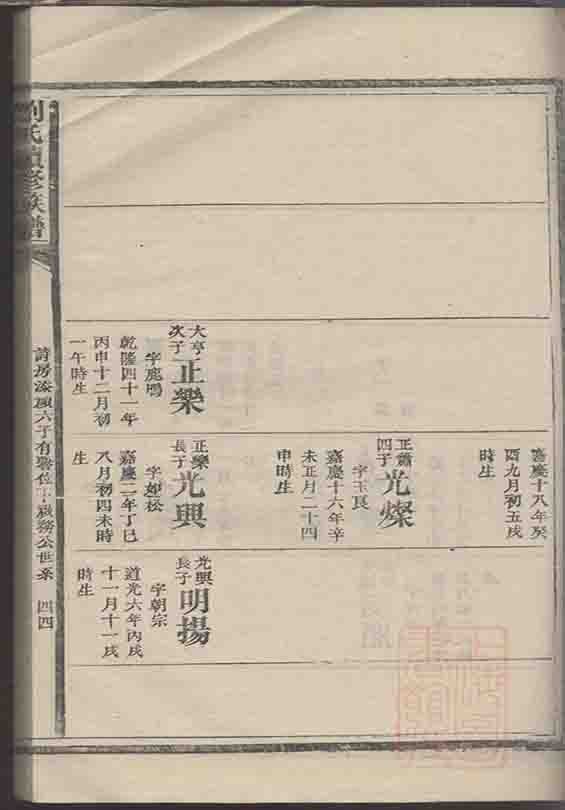 嘉慶十八年癸
酉九月初五戌
時生
正蕭
四子
光燦
字玉良
嘉慶十六年辛
未正月二十四
申時生
大亨
次子
正樂
字鹿鳴
乾隆四十一年
丙申十二月初
一午時生
正樂
長子
光興
字如松
嘉慶二年丁巳
八月初四未時
生
光興
長子
明揚
字朝宗
道光六年丙戌
十一月十一戌
時生
劉氏續修族譜
房添 六子有 位下 務公世系 四四